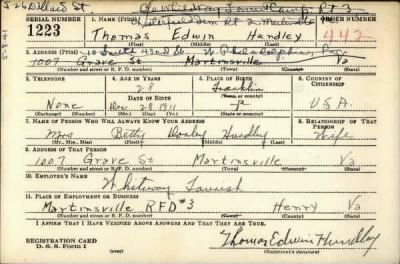 526 Dillard St
Whiteway Tourist Camp Rt 3
SERIAL NUMBER 1. NAME (Print) ORDER NUMBER
1223 Thomas Edwin Hundley 442
(First) (Middle) (Last)
2. ADDRESS (Print) 10 South 42nd St. W Philadelphia
1007 Grave St Martinsville Va
(Number and street or R. F. D. number) (Town) (County) (State)
3. TELEPHONE 4. AGE IN YEARS 5. PLACE OF BIRTH 6. COUNTRY OF CITIZENSHIP
28 Franklin
DATE OF BIRTH (Town or county)
None Dec 28 1911 U.S.A.
(Exchange) (Number) (Mo.) (Day) (Yr.) (State or country)
7. NAME OF PERSON WHO WILL ALWAYS KNOW YOUR ADDRESS 8. RELATIONSHIP OF THAT PERSON
Mrs Betty Hundley Wife
(Mr., Mrs., Miss) (First) (Middle) (Last)
9. ADDRESS OF THAT PERSON
1007 Grave St Martinsville Va
(Number and street or R. F. D. number) (Town) (County) (State)
10. EMPLOYER'S NAME
Whiteway Tourist
11. PLACE OF EMPLOYMENT OR BUSINESS
Martinsville RFD #3 Henry Va
(Number and street or R. F. D. number) (Town) (County) (State)
I AFFIRM THAT I HAVE VERIFIED ABOVE ANSWERS AND THAT THEY ARE TRUE.
REGISTRATION CARD
D. S. S. Form 1 Thomas Edwin Hundley
(over) (Registrant's signature)